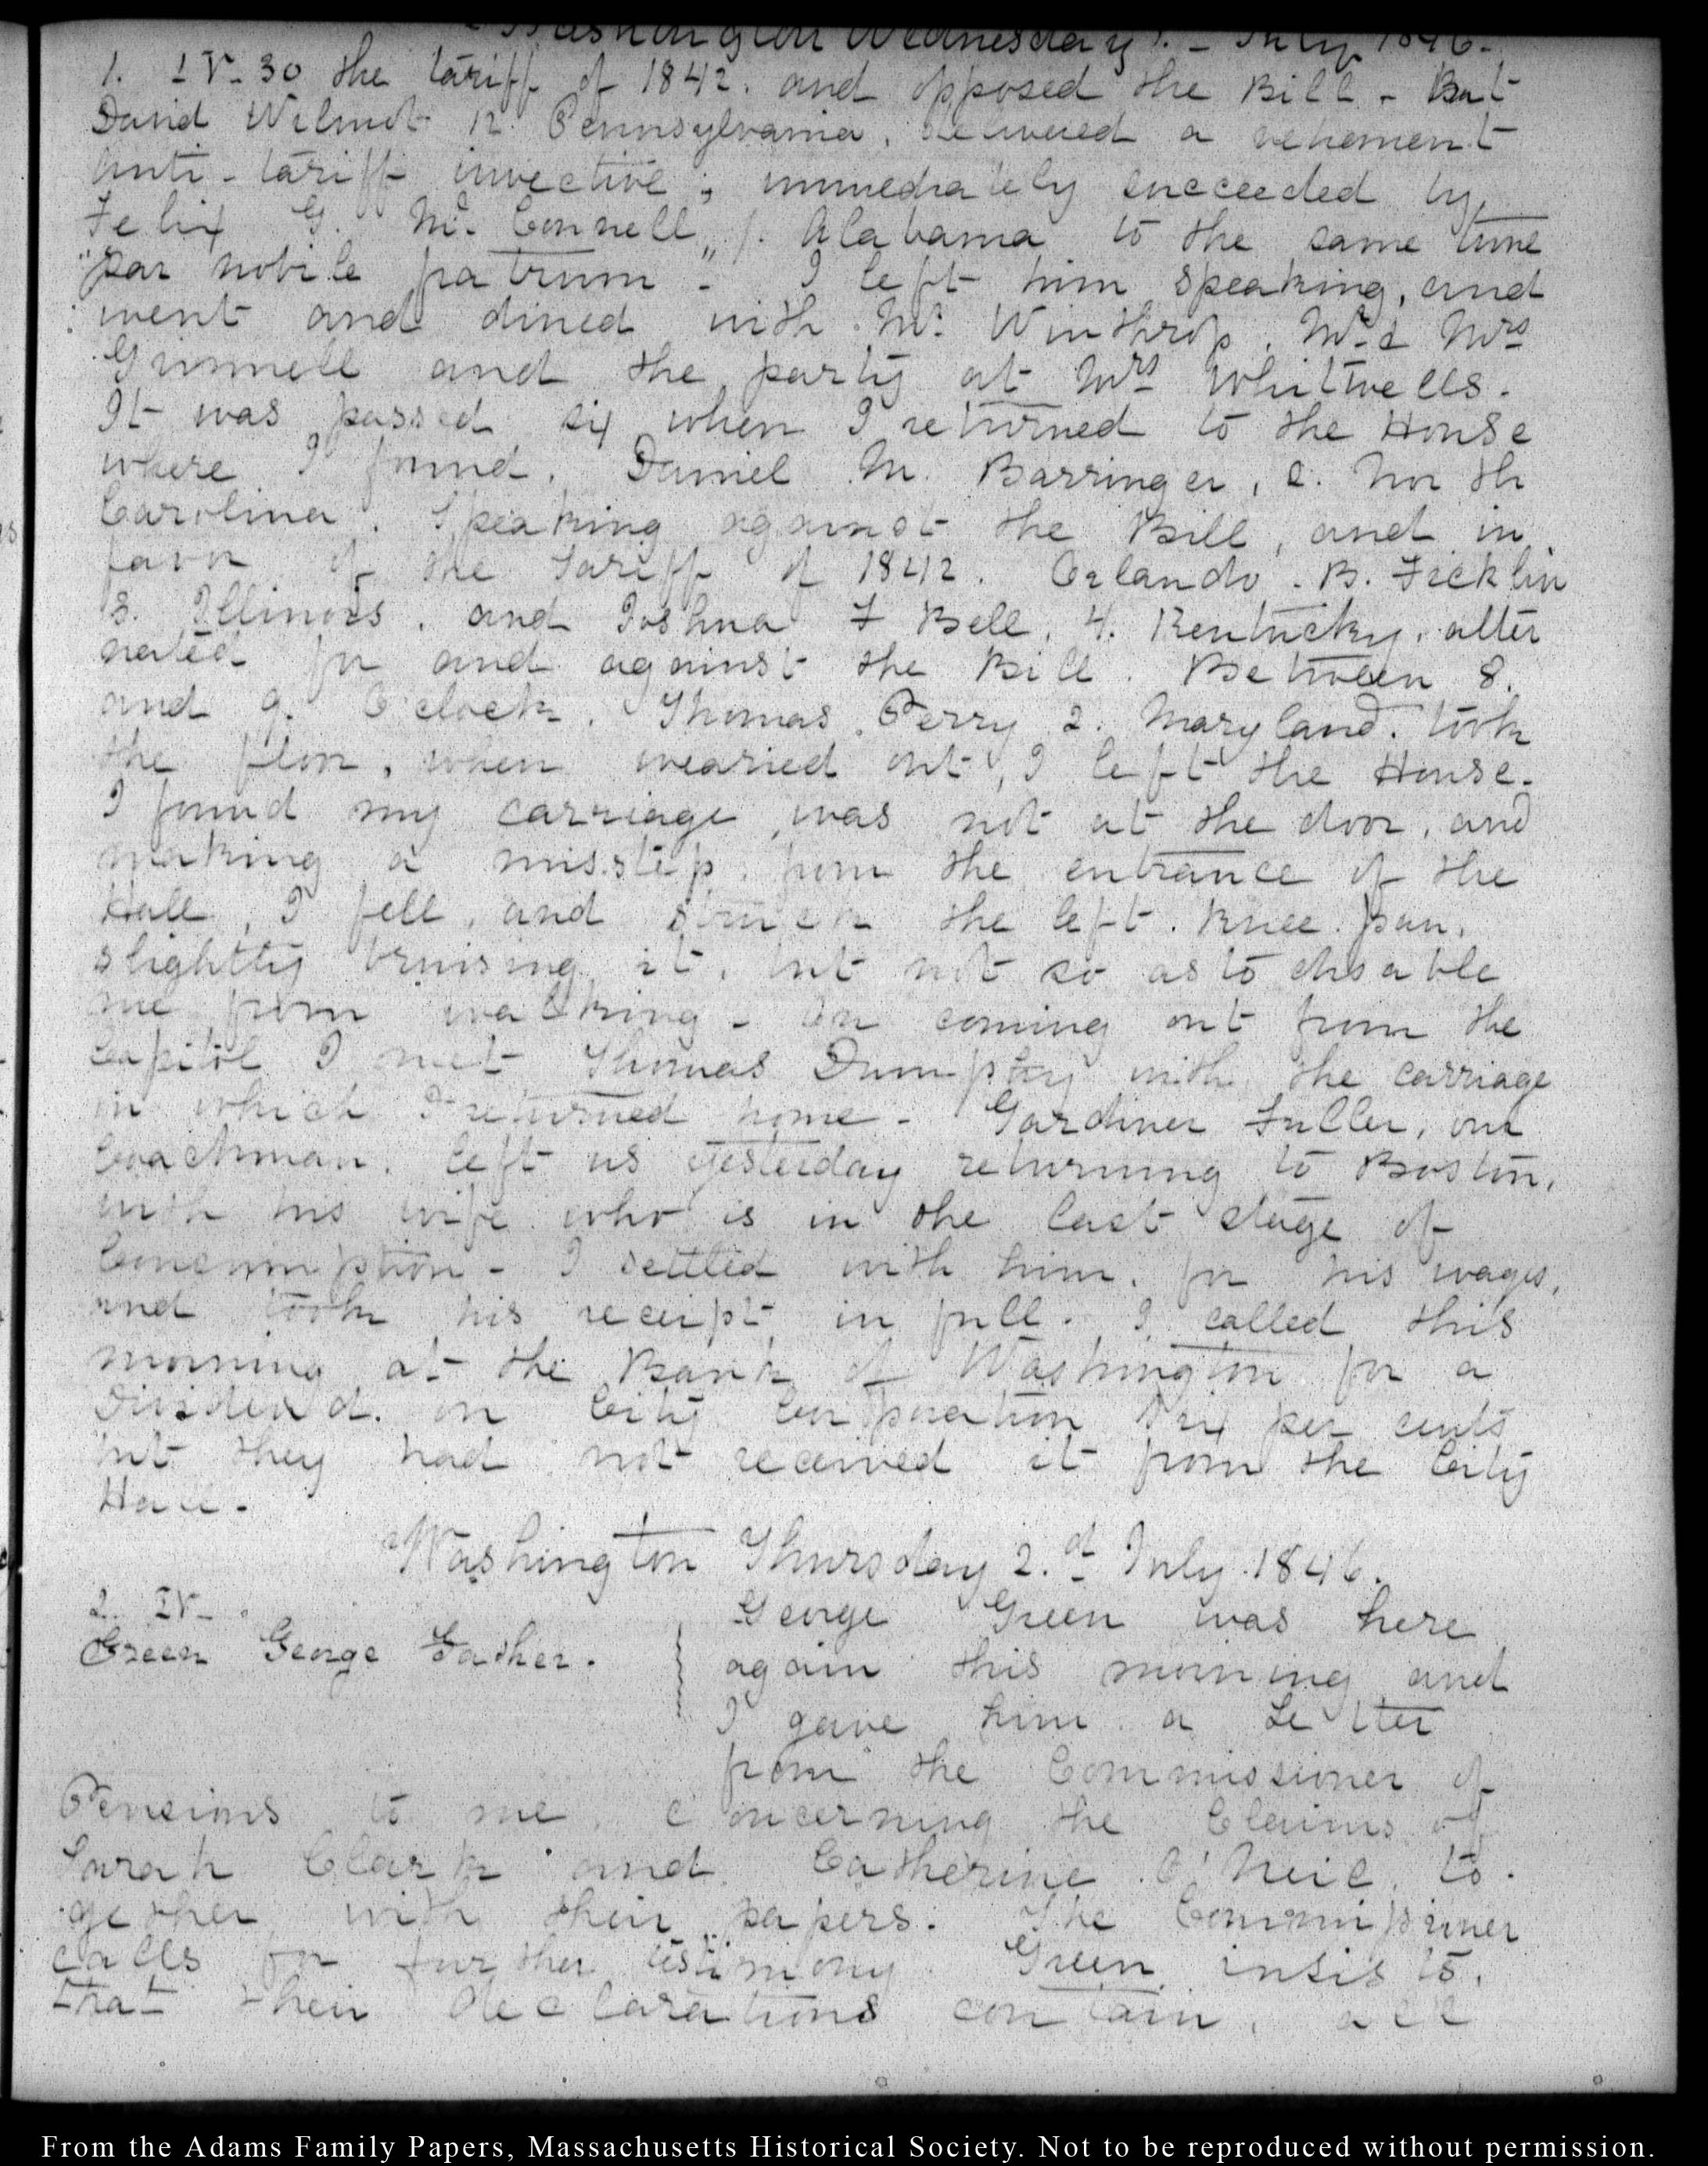 Washington Wednesday 1. - July 1846.
1. IV- 30 the tariff of 1842. and opposed the Bill - But
David Wilmot 12. Pennsylvania, delivered a vehement
anti-tariff invective; immediately succeeded by
Felix G. Mc. Connell, 7. Alabama to the same tune
"par nobile fratrum" - I left him speaking, and
went and dined with Mr. Winthrop, Mr. & Mrs
Grinnell and the party at Mrs Whitwells.
It was passed six when I returned to the House
where I found, Daniel M. Barringer, 2. North
Carolina. Speaking against the Bill, and in
favor of the Tariff of 1842. Orlando. B. Ficklin
3. Illinois, and Joshua F Bell, 4. Kentucky, alter
nated for and against the Bill. Between 8.
and 9. O'clock. Thomas Perry 2. Maryland. took
the floor, when wearied out, I left the House.
I found my carriage was not at the door, and
making a misstep from the entrance of the
Hall, I fell, and struck the left. knee. pan,
slightly bruising it, but not so as to disable
me from walking - On coming out from the
Capitol I met Thomas Dumphy with the carriage
in which I returned home - Gardiner Fuller, our
Coachman, left us yesterday returning to Boston,
with his wife who is in the last stage of
Consumption - I settled with him, for his wages,
and took his receipt in full. I called this
morning at the Bank of Washington for a
Dividend. on City Corporation Six per cents
but they had not received it from the City
Hall -
Washington Thursday 2.d July 1846.
2. IV-
Green George Father.
George Green was here
again this morning and
I gave him a Letter
from the Commissioner of
Pensions to me, concerning the Claims of
Sarah Clark and Catherine O'Neil, to-
gether with their papers. The Commissioner
calls for further testimony. Green insists,
that their declarations contain, all
From the Adams Family Papers, Massachusetts Historical Society. Not to be reproduced without permission.